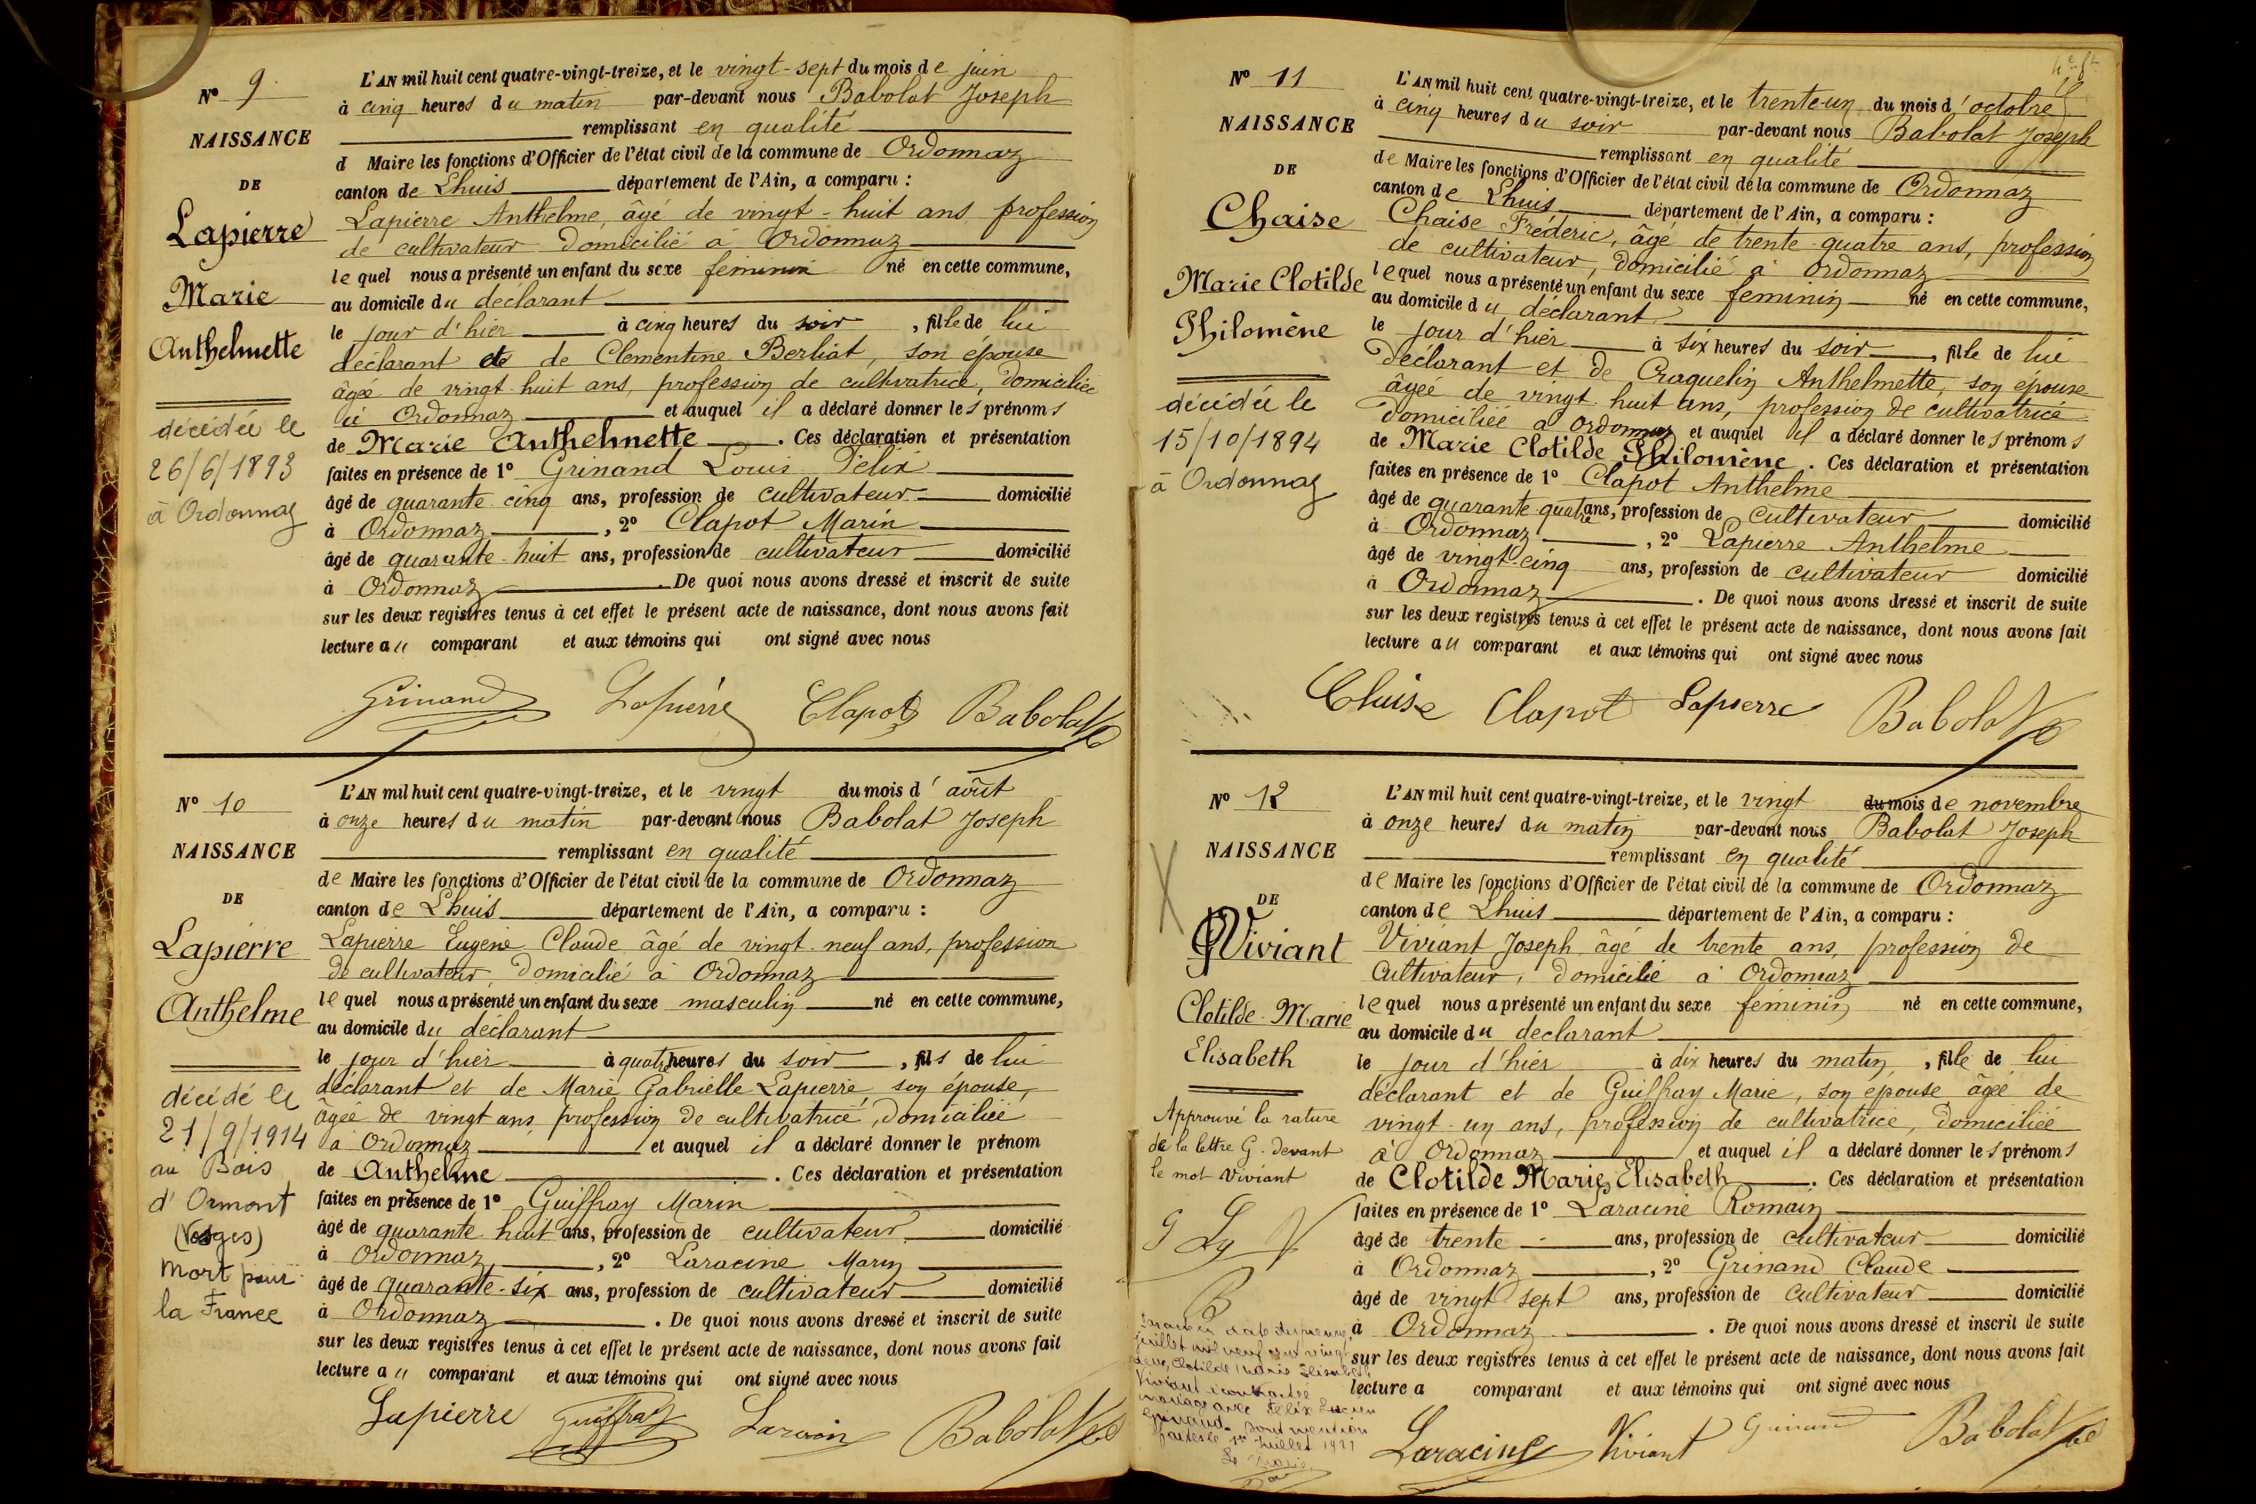 Nº 9
NAISSANCE
DE
Lapierre
Marie
Anthelmette
décédée le
26/6/1893
à Ordonnaz
L'AN mil huit cent quatre-vingt-treize, et le vingt-sept du mois de juin
à cinq heures du matin par-devant nous Babolat Joseph
remplissant en qualité
d Maire les fonctions d'Officier de l'état civil de la commune de Ordonnaz
canton de Lhuis département de l'Ain, a comparu :
Lapierre Anthelme, âgé de vingt-huit ans, profession
de cultivateur domicilié à Ordonnaz
lequel nous a présenté un enfant du sexe féminin né en cette commune,
au domicile du déclarant
le jour d'hier à cinq heures du soir, fille de lui
déclarant et de Clémentine Berliat, son épouse
âgée de vingt-huit ans, profession de cultivatrice, domiciliée
à Ordonnaz et auquel il a déclaré donner les prénoms
de Marie Anthelmette. Ces déclaration et présentation
faites en présence de 1º Grinand Louis Félix
âgé de quarante-cinq ans, profession de cultivateur domicilié
à Ordonnaz, 2º Clapot Marin
âgé de quarante-huit ans, profession de cultivateur domicilié
à Ordonnaz. De quoi nous avons dressé et inscrit de suite
sur les deux registres tenus à cet effet le présent acte de naissance, dont nous avons fait
lecture au comparant et aux témoins qui ont signé avec nous
Grinand Lapierre Clapot Babolat
Nº 10
NAISSANCE
DE
Lapierre
Anthelme
décédé le
21/9/1914
au Bois
d'Ormont
(Vosges)
Mort pour
la France
L'AN mil huit cent quatre-vingt-treize, et le vingt du mois d'août
à onze heures du matin par-devant nous Babolat Joseph
remplissant en qualité
de Maire les fonctions d'Officier de l'état civil de la commune de Ordonnaz
canton de Lhuis département de l'Ain, a comparu :
Lapierre Eugène Claude âgé de vingt-neuf ans, profession
de cultivateur, domicilié à Ordonnaz
lequel nous a présenté un enfant du sexe masculin né en cette commune,
au domicile du déclarant
le jour d'hier à quatre heures du soir, fils de lui
déclarant et de Marie Gabrielle Lapierre, son épouse,
âgée de vingt ans profession de cultivatrice, domiciliée
à Ordonnaz et auquel il a déclaré donner le prénom
de Anthelme. Ces déclaration et présentation
faites en présence de 1º Guiffray Marin
âgé de quarante huit ans, profession de cultivateur domicilié
à Ordonnaz, 2º Laracine Marin
âgé de quarante-six ans, profession de cultivateur domicilié
à Ordonnaz. De quoi nous avons dressé et inscrit de suite
sur les deux registres tenus à cet effet le présent acte de naissance, dont nous avons fait
lecture au comparant et aux témoins qui ont signé avec nous
Lapierre Guiffray Babolat
Nº 11
NAISSANCE
DE
Chaise
Marie Clotilde
Philomène
décédée le
15/10/1894
à Ordonnaz
L'AN mil huit cent quatre-vingt-treize, et le trente-un du mois d'octobre
à cinq heures du soir par-devant nous Babolat Joseph
remplissant en qualité
de Maire les fonctions d'Officier de l'état civil de la commune de Ordonnaz
canton de Lhuis département de l'Ain, a comparu :
Chaise Fréderic, âgé de trente-quatre ans, profession
de cultivateur, domicilié à Ordonnaz
lequel nous a présenté un enfant du sexe féminin né en cette commune,
au domicile du déclarant
le jour d'hier à six heures du soir, fille de lui
déclarant et de Craquelin Anthelmette, son épouse
âgée de vingt-huit ans, profession de cultivatrice
domiciliée à Ordonnaz et auquel il a déclaré donner les prénoms
de Marie Clotilde Philomène. Ces déclaration et présentation
faites en présence de 1º Clapot Anthelme
âgé de quarante-quatre ans, profession de cultivateur domicilié
à Ordonnaz, 2º Lapierre Anthelme
âgé de vingt-cinq ans, profession de cultivateur domicilié
à Ordonnaz. De quoi nous avons dressé et inscrit de suite
sur les deux registres tenus à cet effet le présent acte de naissance, dont nous avons fait
lecture au comparant et aux témoins qui ont signé avec nous
Chaise Clapot Lapierre Babolat
Nº 12
NAISSANCE
DE
Viviant
Clotilde Marie
Elisabeth
Approuvé la rature
de la lettre G. devant
le mot Viviant
G Ly V
B
juillet mil neuf cent vingt
Clotilde Marie Elisabeth
Viviant a contracté
mariage avec Félix Lucien
Grinand. Dont mention
faite le 1er juillet 1921
Le Maire
L'AN mil huit cent quatre-vingt-treize, et le vingt du mois de novembre
à onze heures du matin par-devant nous Babolat Joseph
remplissant en qualité
de Maire les fonctions d'Officier de l'état civil de la commune de Ordonnaz
canton de Lhuis département de l'Ain, a comparu :
Viviant Joseph âgé de trente ans, profession de
cultivateur, domicilié à Ordonnaz
lequel nous a présenté un enfant du sexe féminin né en cette commune,
au domicile du déclarant
le jour d'hier à dix heures du matin, fille de lui
déclarant et de Guiffray Marie, son épouse âgée de
vingt-un ans, profession de cultivatrice, domiciliée
à Ordonnaz et auquel il a déclaré donner les prénoms
de Clotilde Marie Elisabeth. Ces déclaration et présentation
faites en présence de 1º Laracine Romain
âgé de trente ans, profession de cultivateur domicilié
à Ordonnaz, 2º Grinand Claude
âgé de vingt sept ans, profession de cultivateur domicilié
à Ordonnaz. De quoi nous avons dressé et inscrit de suite
sur les deux registres tenus à cet effet le présent acte de naissance, dont nous avons fait
lecture a comparant et aux témoins qui ont signé avec nous
Laracine Viviant Grinand Babolat